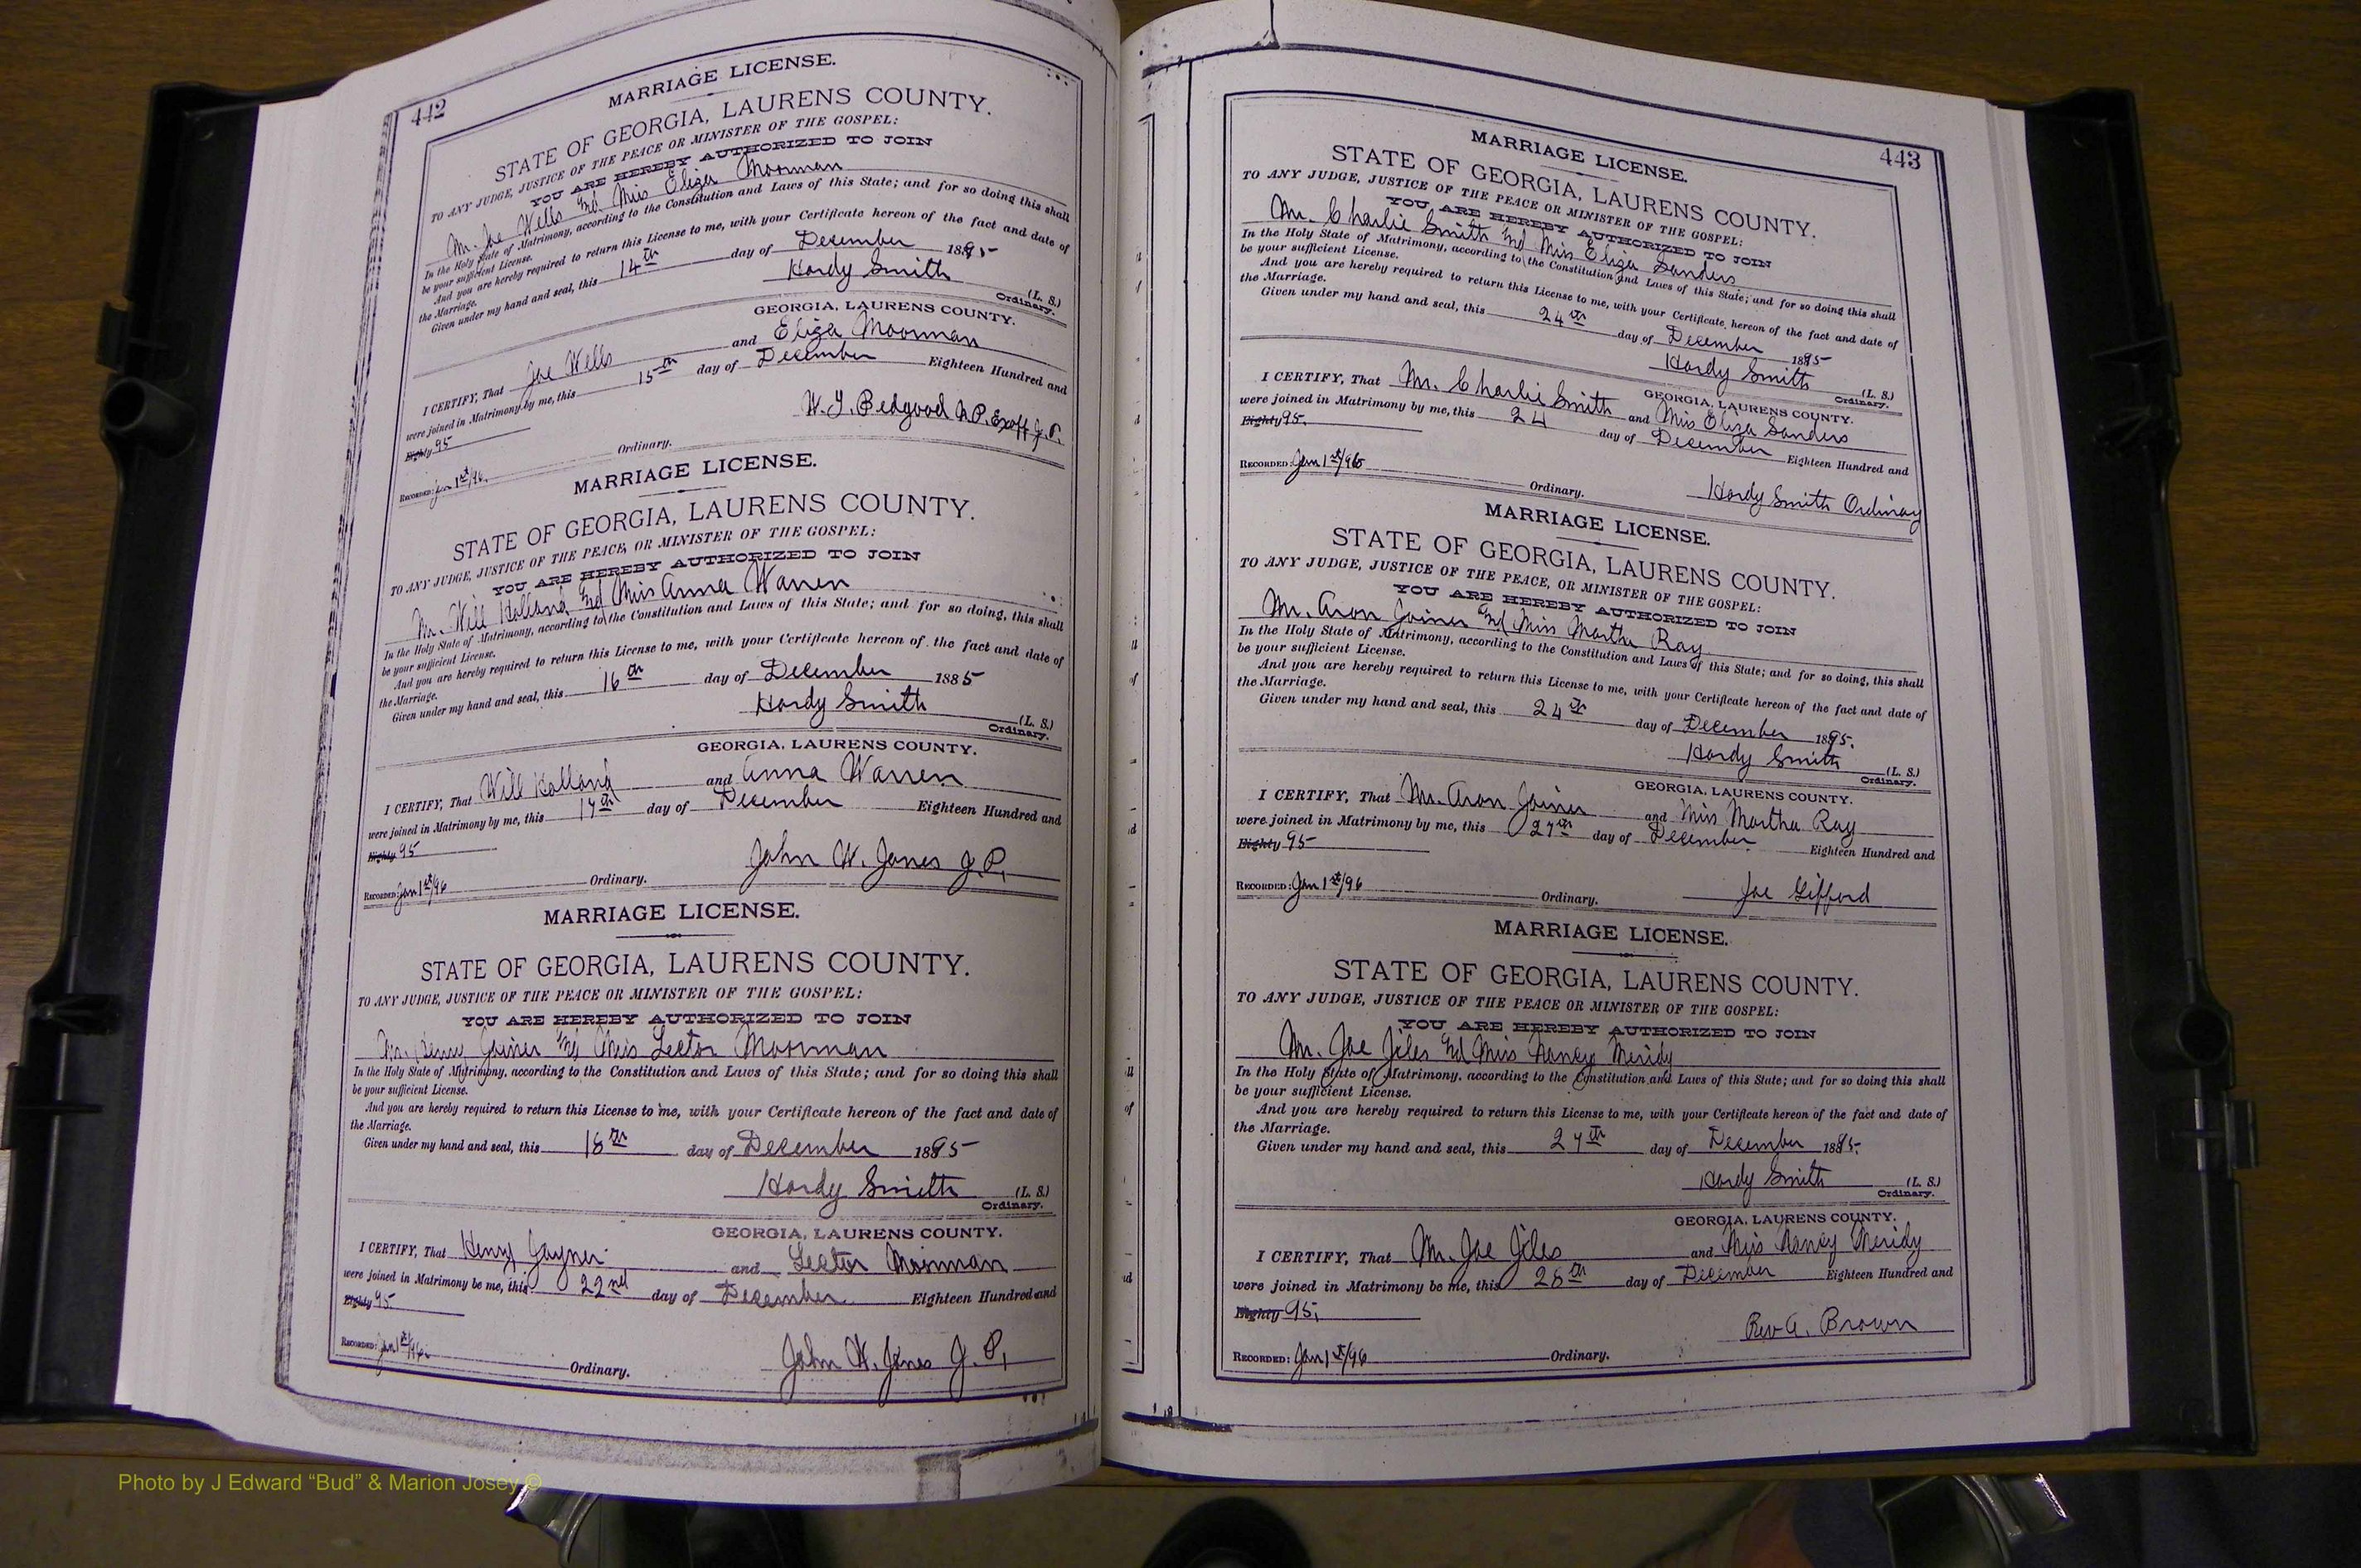 442
MARRIAGE LICENSE.
STATE OF GEORGIA, LAURENS COUNTY.
TO ANY JUDGE, JUSTICE OF THE PEACE OR MINISTER OF THE GOSPEL:
YOU ARE HEREBY AUTHORIZED TO JOIN
Mr. Joe Wells and Miss Eliza Moorman
In the Holy State of Matrimony, according to the Constitution and Laws of this State; and for so doing this shall
be your sufficient License.
And you are hereby required to return this License to me, with your Certificate hereon of the fact and date of
the Marriage.
Given under my hand and seal, this 14th day of December 1895
Hardy Smith (L. S.)
Ordinary.
GEORGIA, LAURENS COUNTY.
I CERTIFY, That Joe Wells and Eliza Moorman
were joined in Matrimony by me, this 15th day of December Eighteen Hundred and
Eighty 95
W. J. Bedgood N.P. Exoff J.P.
Recorded: Jan 1st/96. Ordinary.
MARRIAGE LICENSE.
STATE OF GEORGIA, LAURENS COUNTY.
TO ANY JUDGE, JUSTICE OF THE PEACE, OR MINISTER OF THE GOSPEL:
YOU ARE HEREBY AUTHORIZED TO JOIN
Mr. Will Holland and Miss Anna Warren
In the Holy State of Matrimony, according to the Constitution and Laws of this State; and for so doing, this shall
be your sufficient License.
And you are hereby required to return this License to me, with your Certificate hereon of the fact and date of
the Marriage.
Given under my hand and seal, this 16th day of December 1885
Hardy Smith (L. S.)
Ordinary.
GEORGIA, LAURENS COUNTY.
I CERTIFY, That Will Holland and Anna Warren
were joined in Matrimony by me, this 17th day of December Eighteen Hundred and
Eighty 95
John W. Jones J.P.
Recorded: Jan 1st/96 Ordinary.
MARRIAGE LICENSE.
STATE OF GEORGIA, LAURENS COUNTY.
TO ANY JUDGE, JUSTICE OF THE PEACE OR MINISTER OF THE GOSPEL:
YOU ARE HEREBY AUTHORIZED TO JOIN
Mr. Henry Joiner and Miss Lector Moorman
In the Holy State of Matrimony, according to the Constitution and Laws of this State; and for so doing this shall
be your sufficient License.
And you are hereby required to return this License to me, with your Certificate hereon of the fact and date of
the Marriage.
Given under my hand and seal, this 18th day of December 1895
Hardy Smith (L. S.)
Ordinary.
GEORGIA, LAURENS COUNTY.
I CERTIFY, That Henry Joyner and Lector Moorman
were joined in Matrimony be me, this 22nd day of December Eighteen Hundred and
Eighty 95
John W. Jones J. P.
Recorded: Jan 1st/96. Ordinary.
443
MARRIAGE LICENSE.
STATE OF GEORGIA, LAURENS COUNTY.
TO ANY JUDGE, JUSTICE OF THE PEACE OR MINISTER OF THE GOSPEL:
YOU ARE HEREBY AUTHORIZED TO JOIN
Mr. Charlie Smith and Miss Eliza Sanders
In the Holy State of Matrimony, according to the Constitution and Laws of this State; and for so doing this shall
be your sufficient License.
And you are hereby required to return this License to me, with your Certificate hereon of the fact and date of
the Marriage.
Given under my hand and seal, this 24th day of December 1895
Hardy Smith (L. S.)
Ordinary.
GEORGIA, LAURENS COUNTY.
I CERTIFY, That Mr. Charlie Smith and Miss Eliza Sanders
were joined in Matrimony by me, this 24 day of December Eighteen Hundred and
Eighty 95.
Hardy Smith Ordinary
Recorded: Jan 1st/96 Ordinary.
MARRIAGE LICENSE.
STATE OF GEORGIA, LAURENS COUNTY.
TO ANY JUDGE, JUSTICE OF THE PEACE, OR MINISTER OF THE GOSPEL:
YOU ARE HEREBY AUTHORIZED TO JOIN
Mr. Aron Joiner and Miss Martha Ray
In the Holy State of Matrimony, according to the Constitution and Laws of this State; and for so doing, this shall
be your sufficient License.
And you are hereby required to return this License to me, with your Certificate hereon of the fact and date of
the Marriage.
Given under my hand and seal, this 24th day of December 1895.
Hardy Smith (L. S.)
Ordinary.
GEORGIA, LAURENS COUNTY.
I CERTIFY, That Mr. Aron Joiner and Miss Martha Ray
were joined in Matrimony by me, this 27th day of December Eighteen Hundred and
Eighty 95
Joe Gifford
Recorded: Jan 1st/96 Ordinary.
MARRIAGE LICENSE.
STATE OF GEORGIA, LAURENS COUNTY.
TO ANY JUDGE, JUSTICE OF THE PEACE OR MINISTER OF THE GOSPEL:
YOU ARE HEREBY AUTHORIZED TO JOIN
Mr. Joe Jiles and Miss Nancy Meridy
In the Holy State of Matrimony, according to the Constitution and Laws of this State; and for so doing this shall
be your sufficient License.
And you are hereby required to return this License to me, with your Certificate hereon of the fact and date of
the Marriage.
Given under my hand and seal, this 27th day of December 1895.
Hardy Smith (L. S.)
Ordinary.
GEORGIA, LAURENS COUNTY.
I CERTIFY, That Mr. Joe Jiles and Miss Nancy Meridy
were joined in Matrimony be me, this 28th day of December Eighteen Hundred and
Eighty 95,
Rev A. Brown
Recorded: Jan 1st/96 Ordinary.
Photo by J Edward “Bud” & Marion Josey ©